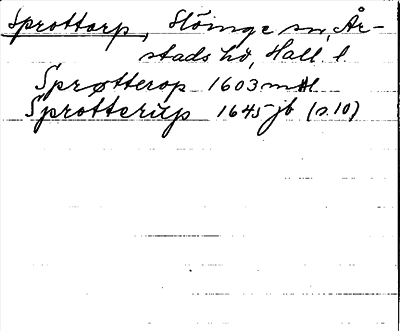 Sprottorp, Slöinge sn, År-
stads hd, Hall. l.
Sprøtterop 1603 mtl
Sprotterup 1645 jb (s.10)